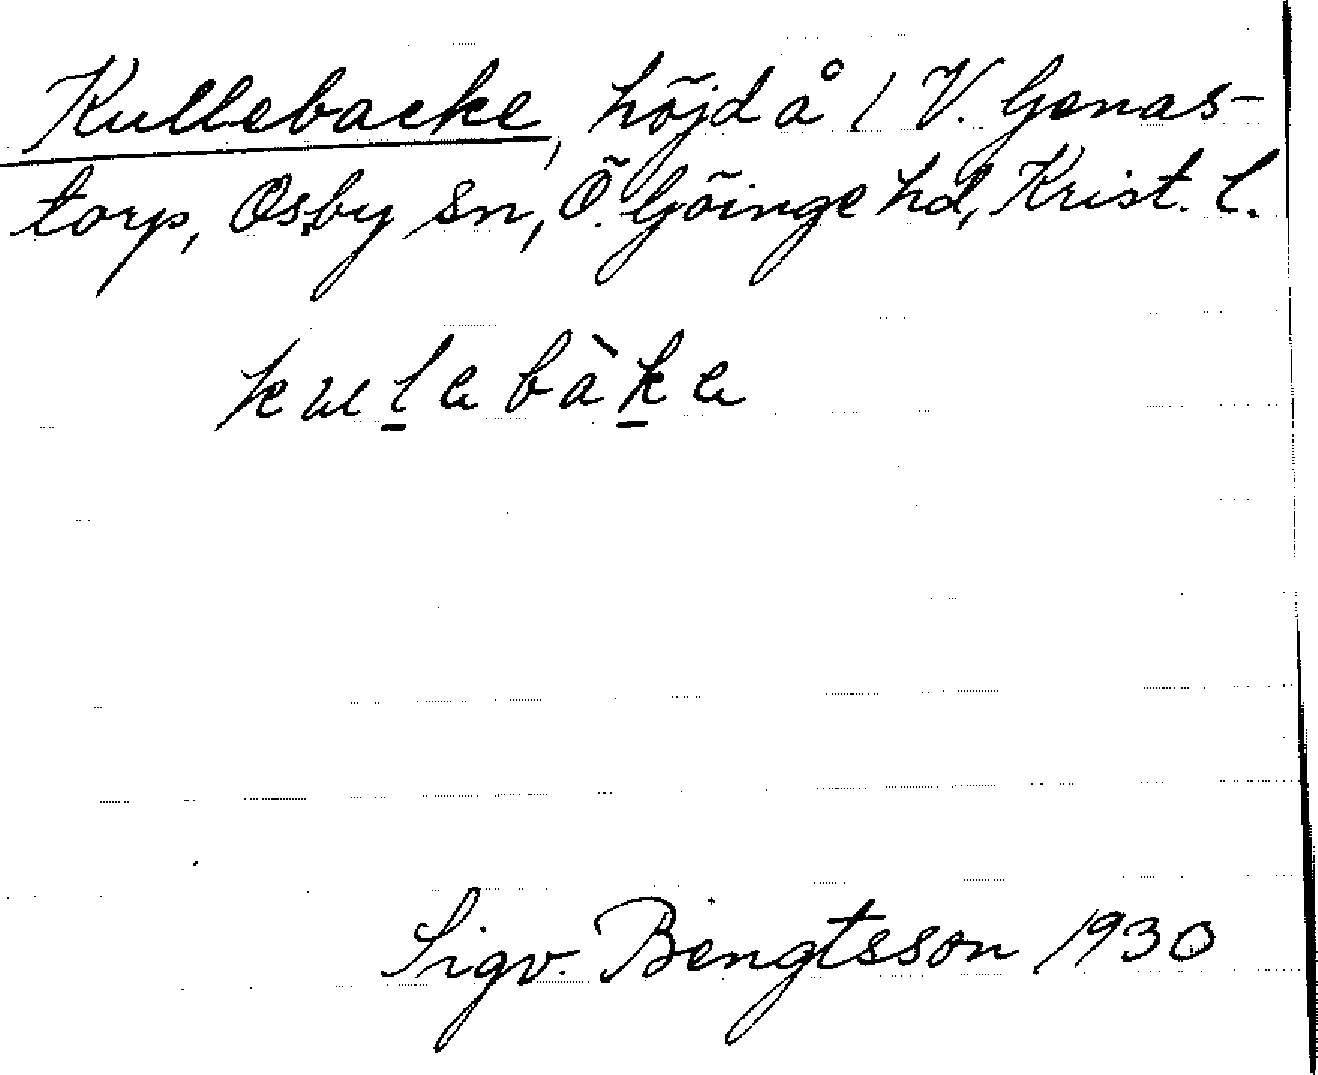 Kullebacke, höjd å 1 V. Genas-
torp, Osby sn, Ö. Göinge hd, Krist. l.
kulebàke
Sigv. Bengtsson 1930